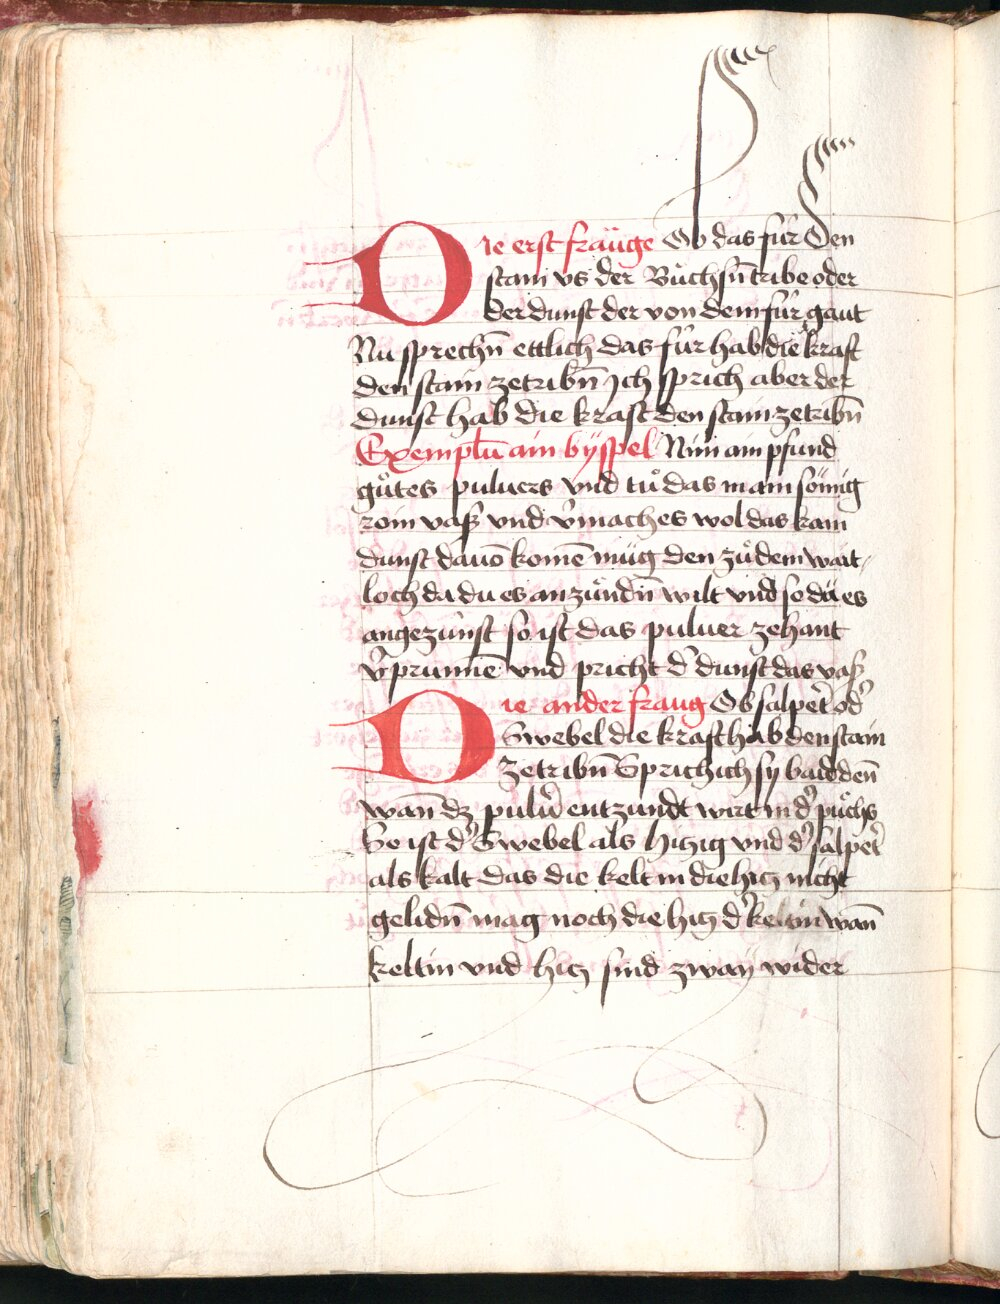 Die erst frauͤge Ob das fúr den
stain vs der Bùchsn̄ tribe oder
der dunst der von dem fúr gaut
Nu sprechn̄ ettlich das fúr hab die kraft
den stain zetribn̄ Ich sprich aber der
dunst hab die kraft den stain zetribn̄
Exemplū ain byͤspel Nim ain pfund
guͦtes puluers vnd tuͦ das in ain soͤmig
vnd v̾maches wol das kain
dunst dauō komē muͤg den zuͦ dem wait
loch da du es anzúndn̄ wilt vnd so dú es
angezúnst so ist das puluer zehant
v̾prunnē vnd pricht d̾ dunst das vaß
Die ander fraug Ob salpet̾ od̾
Swebel die kraft hab den stain
zetribn̄ Sprich ich sy baid den̄
wan̄ dz pulu̾ entzundt wirt in d̾ puͤchs
So ist d̾ Swebel als hitzig vnd d̾ salpet̾
als kalt das die kelt in die hitz nicht
gelidn̄ mag noch die hitz d̾ keltin wan̄
keltin vnd hitz sind zway wider